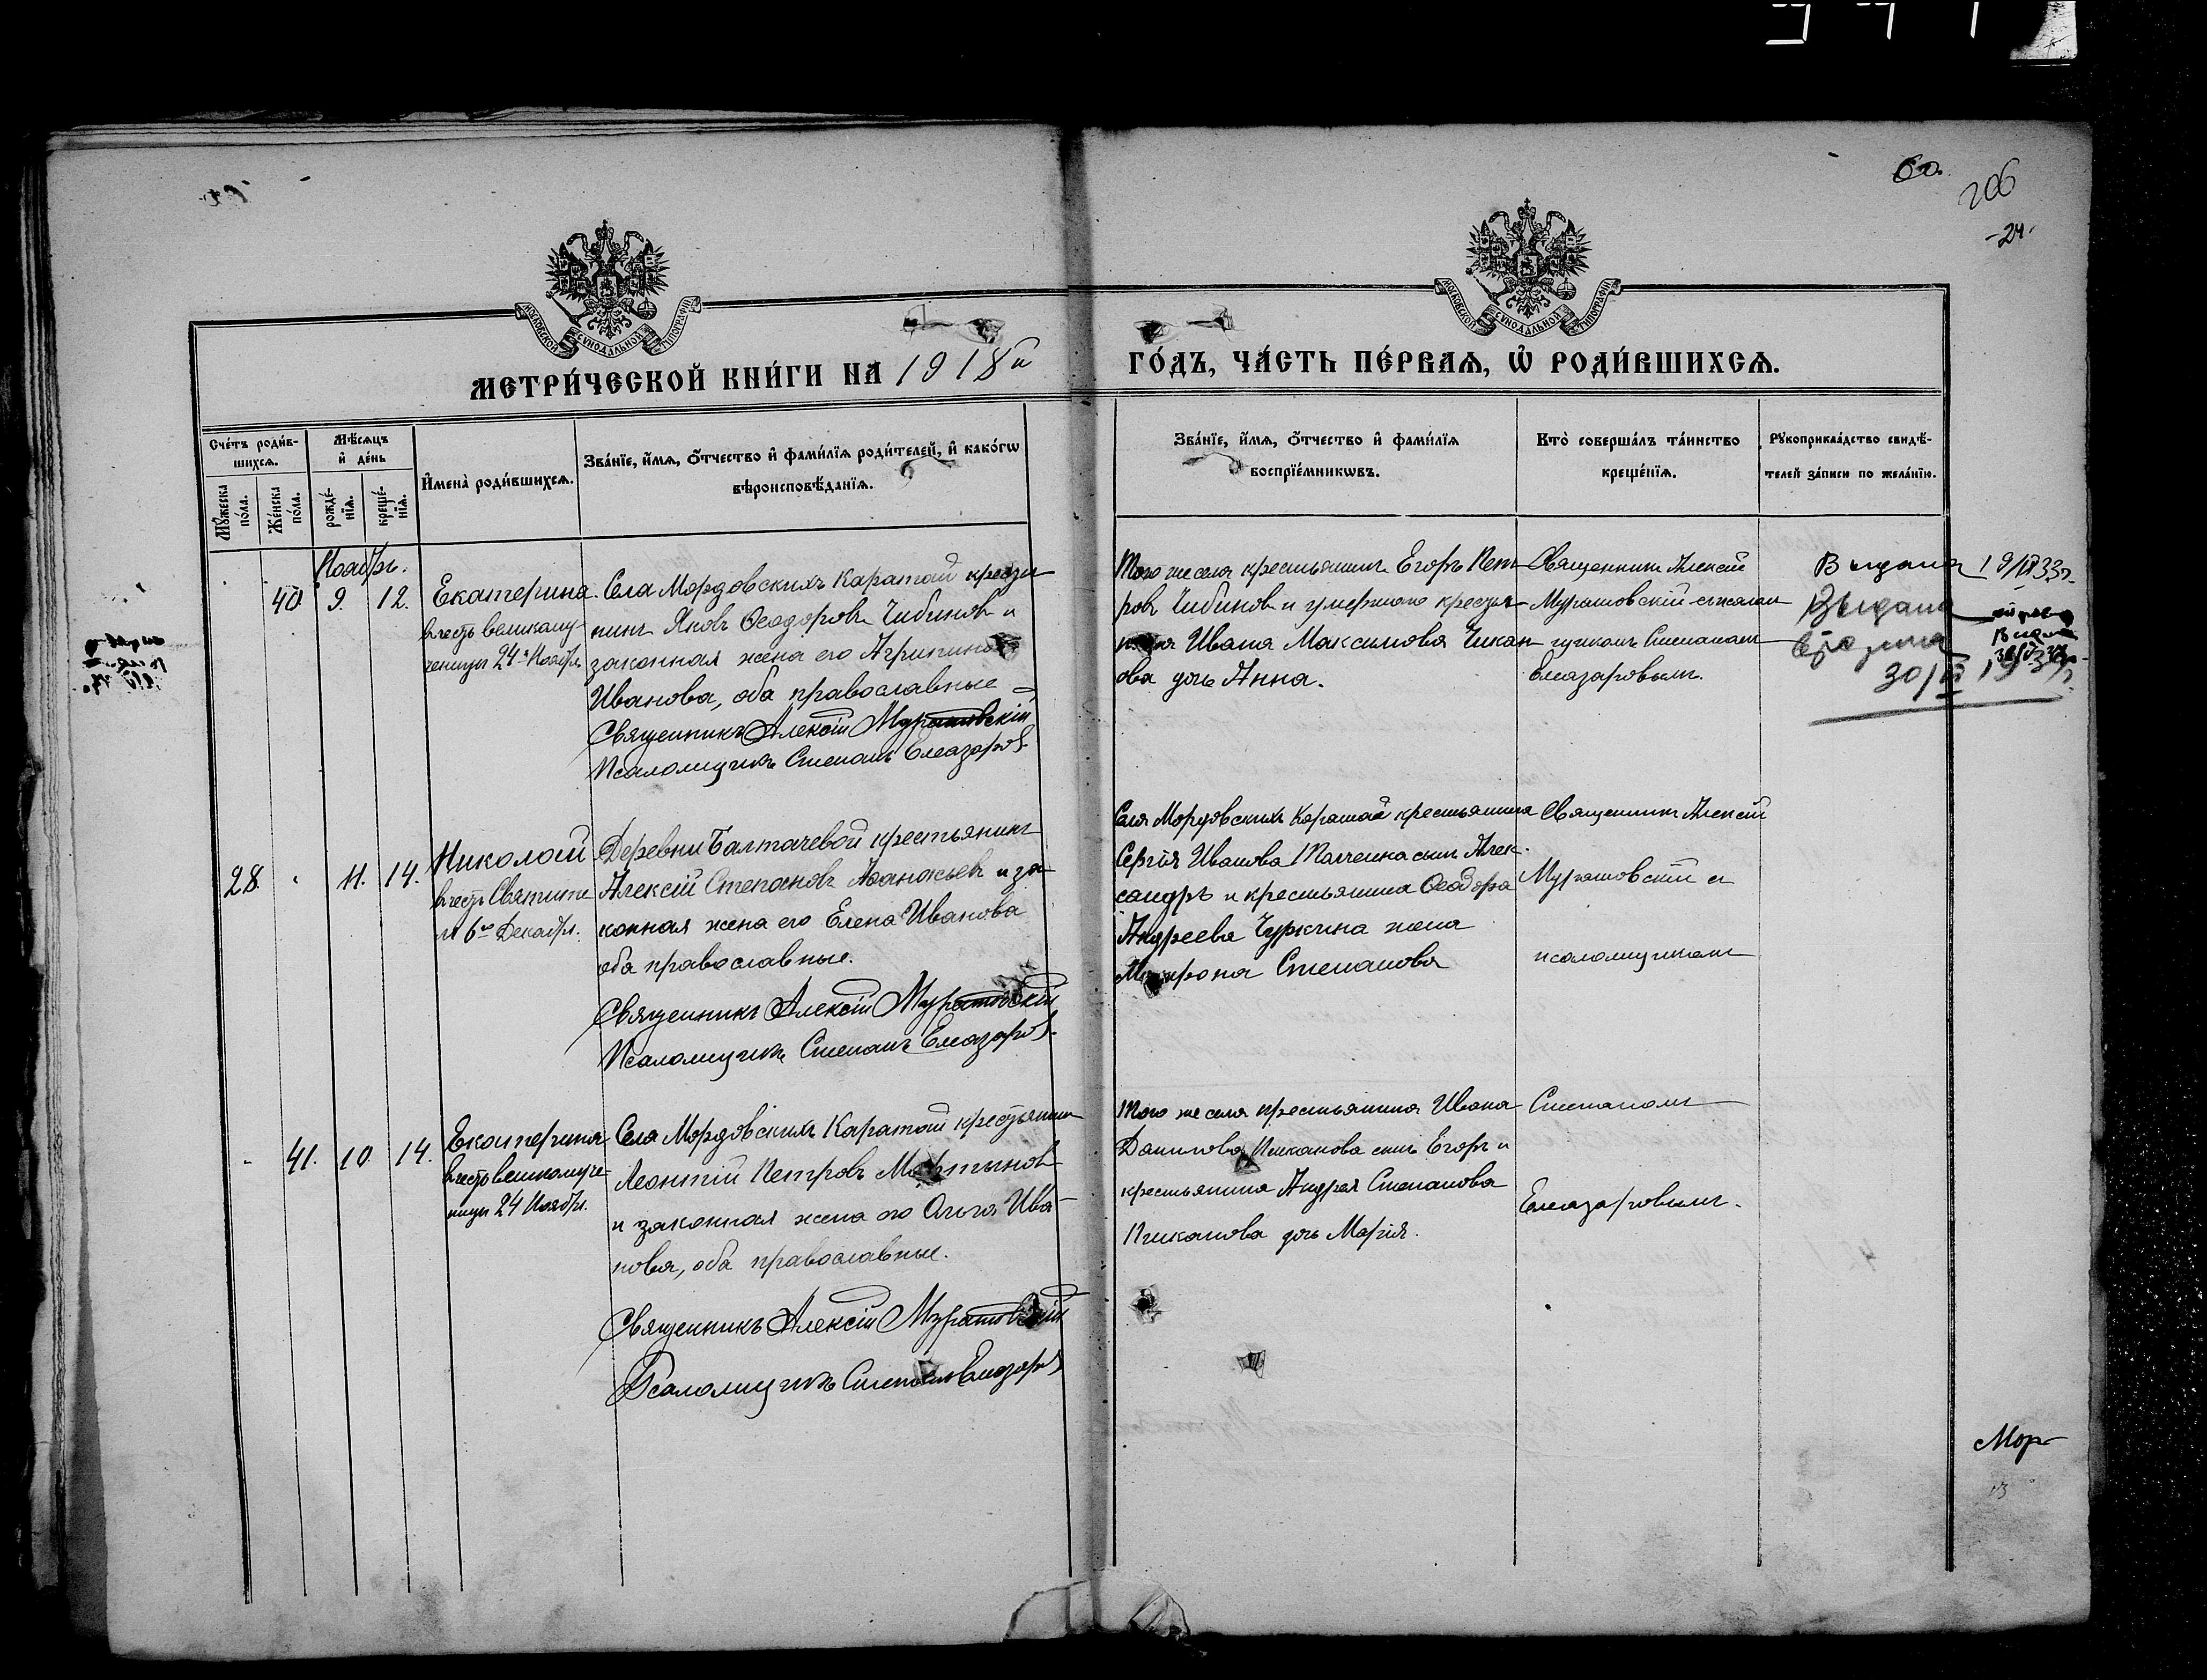 60.
206
-24-
МОСКОВСКОЙ СѴНОДАЛЬНОЙ ТИПОГРАФІИ
МОСКОВСКОЙ СѴНОДАЛЬНОЙ ТИПОГРАФІИ
МЕТРИ́ЧЕСКОЙ КНИ́ГИ НА 1918й
ГО́ДЪ, ЧА́СТЬ ПЕ́РВАѦ, Ѡ҆ РОДИ́ВШИХСѦ.
Сче́тъ роди́в-
шихсѧ.
Мѣ́сѧцъ
и҆ де́нь
Мꙋ́жеска
по́ла.
Же́нска
по́ла.
рожде́-
нїѧ.
креще́-
нїѧ.
И҆мена̀ роди́вшихсѧ.
Зва́нїе, и҆́мѧ, ѻ҆́тчество и҆ фами́лїѧ роди́телей, и҆ како́гѡ
вѣроисповѣ́данїѧ.
Зва́нїе, и҆́мѧ, ѻ҆́тчество и҆ фами́лїѧ
воспрїе́мникѡвъ.
Кто̀ соверша́лъ та́инство
креще́нїѧ.
Рꙋкоприкла́дство свидѣ́-
телей за́писи по жела́нїю.
Ноябрь.
40. 9. 12.
Екатерина
въ честь великому-
ченицы 24го Ноября
Села Мордовскихъ Каратай крестья
нинъ Яковъ Ѳеодоровъ Чибиновъ и
законная жена его Агрипина
Иванова, оба православные
Священникъ Алексій Муратовскій
Псаломщикъ Степанъ Елеазаровъ
Того же села крестьянинъ Егоръ Пет
ровъ Чибиновъ и умершаго крестья-
нина Ивана Максимова Чикан
ова дочь Анна.
Священникъ Алексій
Муратовскій съ псалом
щикомъ Степаномъ
Елеазаровымъ.
Выдана 19/III 33г.
Выдана
30/III 193
28. 11. 14.
Николай
въ честь Святите
ля 6го Декабря.
Деревни Балтачевой крестьянинъ
Алексій Степановъ Аѳанасьевъ и за-
конная жена его Елена Иванова
оба православные.
Священникъ Алексій Муратовскій
Псаломщикъ Степанъ Елеазаровъ
Села Мордовскихъ Каратай крестьянина
Сергія Иванова сынъ Алек-
сандръ и крестьянина Ѳеодора
Андреева Чуркина жена
Матрона Степанова
Священникъ Алексій
Муратовскій съ
псаломщикомъ
Степаномъ
Елеазаровымъ.
- 41. 10. 14.
Екатерина
въ честь великомуче-
ницы 24 Ноября.
Села Мордовскихъ Каратай крестьянинъ
Леонтій Петровъ Мартыновъ
и законная жена его Ольга Ива-
нова, оба православные.
Священникъ Алексій Муратовскій
Псаломщикъ Степанъ Елеазаровъ
Того же села крестьянина Ивана
Данилова Пиканова сынъ Егоръ и
крестьянина Андрея Степанова
Пиканова дочь Марія.
Мор-